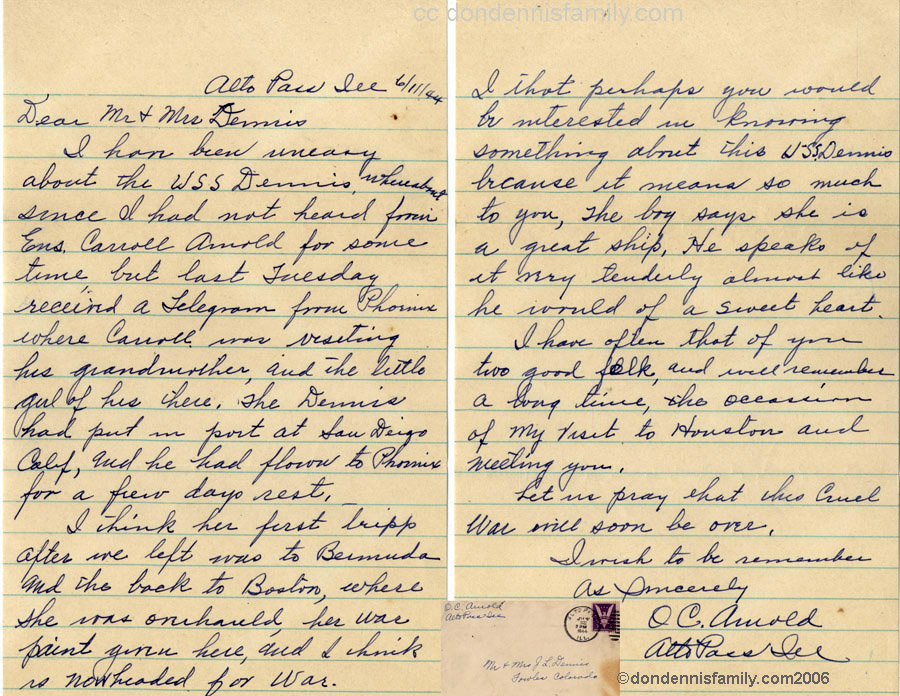 cc dondennisfamily.com
Alto Pass Ill 6/11/44
Dear Mr & Mrs Dennis
I han been uneasy
about the USS Dennis, whereabout
since I had not heard from
Ens. Carroll Arnold for some
time but last Tuesday
received a Telegram from Phoinix
where Carroll was visiting
his grandmother, and the little
girl of his there. The Dennis
had put in port at San Deigo
Calif, and he had flown to Phoinix
for a few days rest.
I think her first tripp
after we left was to Bermuda
and the back to Boston, where
she was overhauld, her war
paint given here, and I think
is now headed for War.
I that perhaps you would
be interested in knowing
something about this USS Dennis
because it means so much
to you, The boy says she is
a great ship. He speaks of
it very tenderly almost like
he would of a sweet heart.
I have often that of you
two good folk, and will remember
a long time, the occasion
of my visit to Houston and
meeting you.
Let us pray that this Cruel
War will soon be over.
I wish to be remember
As Sincerely
O.C. Arnold
Alto Pass Ill
O.C. Arnold
Alto Pass Ill
1944
ILL.
Mr & Mrs J L Dennis
Fowler Colorado
©dondennisfamily.com2006